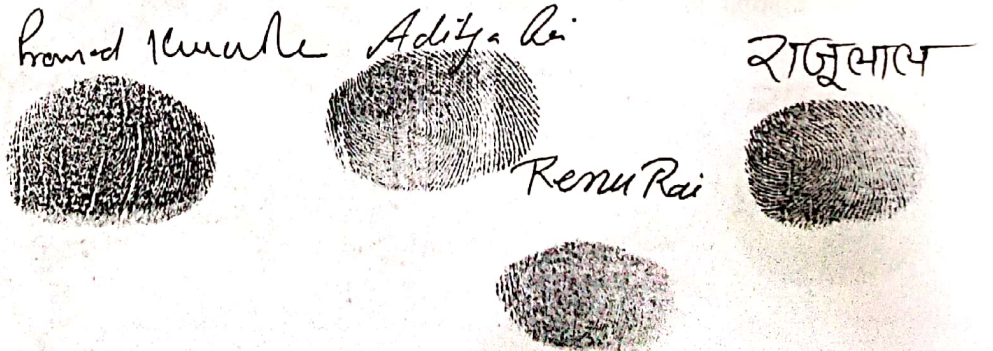 Pramod Kumar
Aditya Rai
राजूलाल
Renu Rai